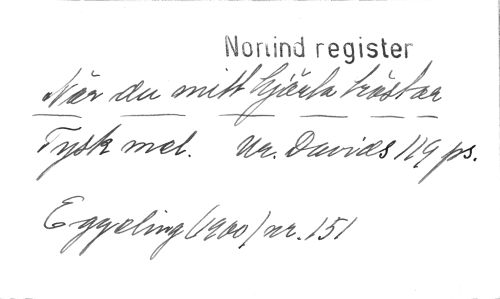 Norlind register
När du mitt hjärta tröstar
Tysk mel. Ur. Davids 119 ps.
Eggeling (1900) nr. 151